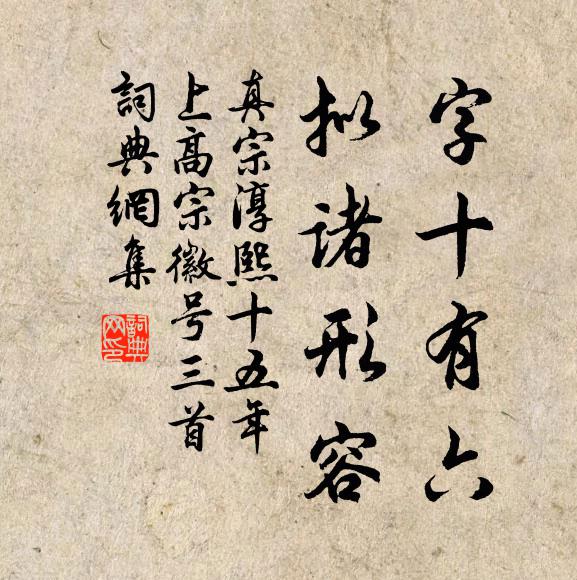 字十有六
拟诸形容
真宗淳熙十五年
上高宗徽号三首
詞典網集
詞典网印